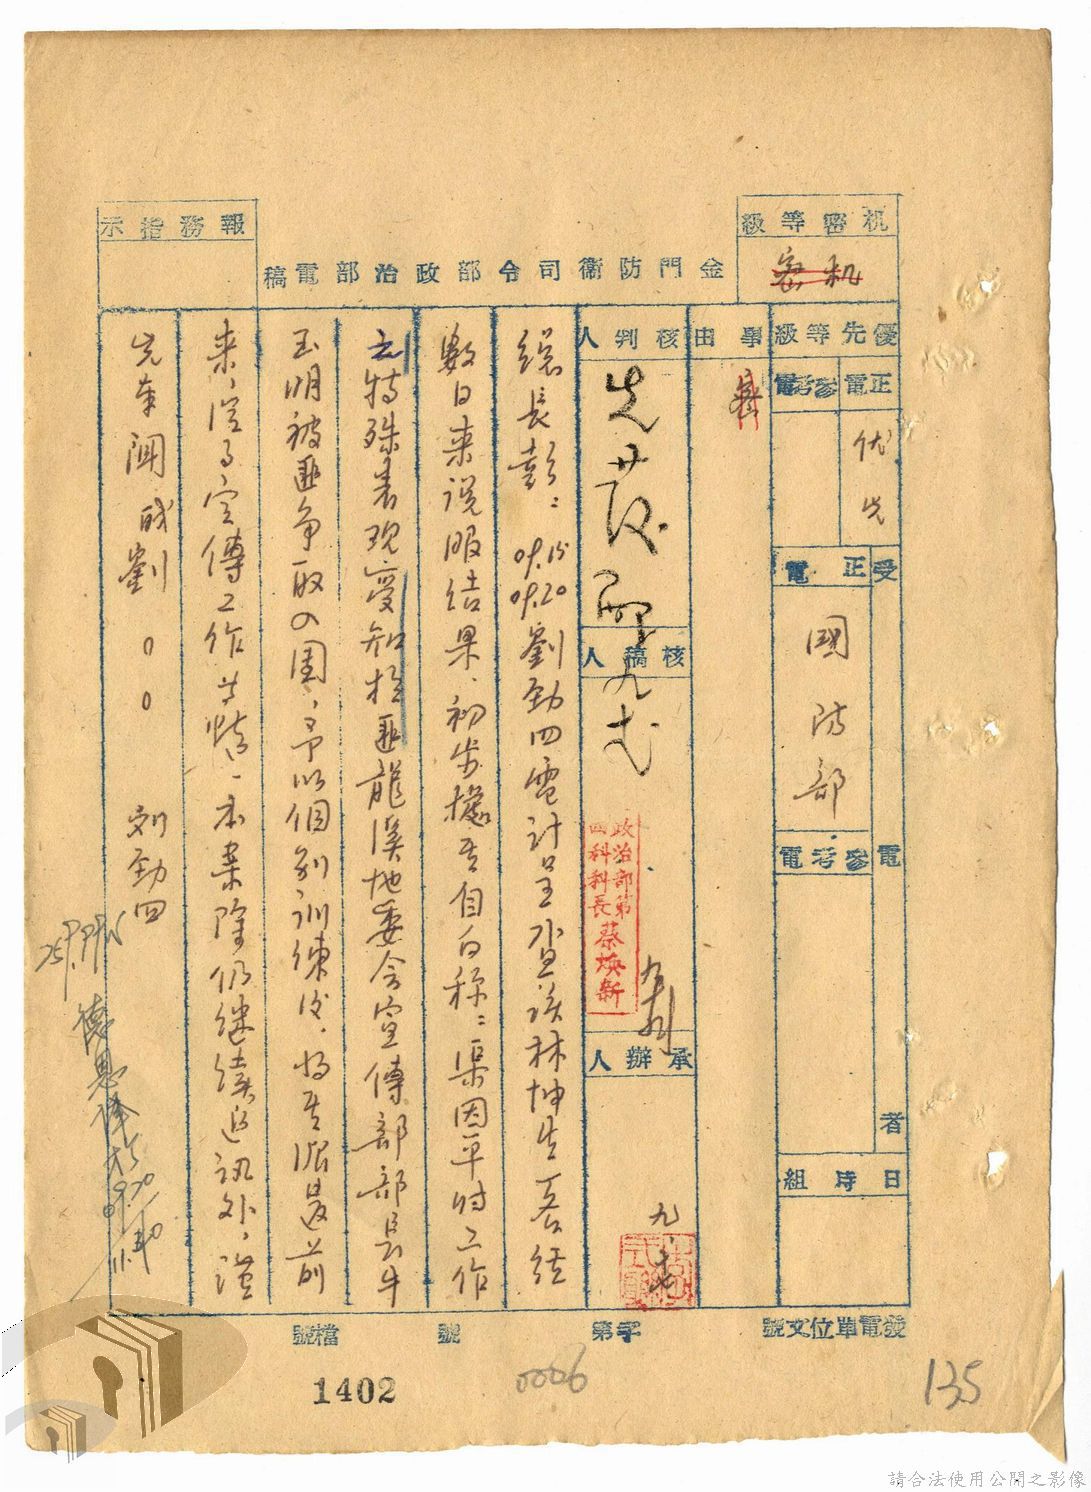 机密等級
机密
報務指示
金門防衛司令部政治部電稿
優先等級
正電
參考電
優先
受電者
正電
國防部
參考電
日時組
事由
核判人
先發
核稿人
政治部第四科科長蔡煥新
承辦人
總長彭：09.15 09.20劉勁四電計呈查該林坤生一名經
數日來說服結果、初步據其自白称：渠因平时工作
上特殊表現受知於匪龍溪地委会宣傳部部長牛
玉明被匪争取入团、予以個别训练後、将其派遣前
来、從事宣傳工作等情、本案除仍继续追訊外、謹
先奉聞 職劉00 刘勁四
發電單位文號
字第
號
檔號
1402
0006
135
請合法使用公開之影像